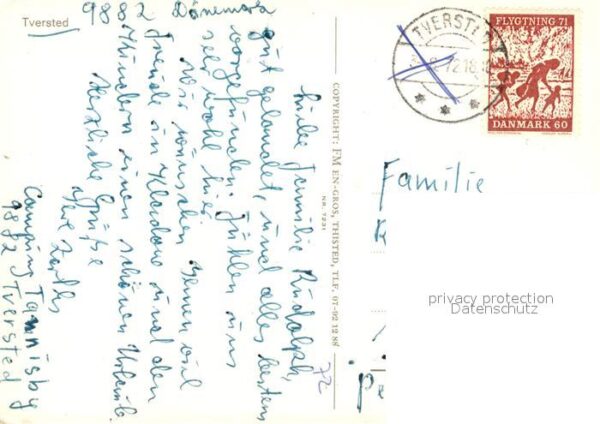 Tversted
9882 Dänemark
Liebe Familie Rudolph,
gut gelandet, und alles bestens
vorgefunden. Fühlen uns
sehr wohl hier.
Wir wünschen Ihnen viel
Freude in und den
Kindern einen schönen Urlaub.
Herzliche Grüße
Camping Tannisby
9882 Tversted
COPYRIGHT: FM EN-GROS, THISTED, TLF. 07-92 12 88
NR. 7231
72
TVERSTED
12.18
FLYGTNING 71
DANMARK 60
Familie
privacy protection
Datenschutz